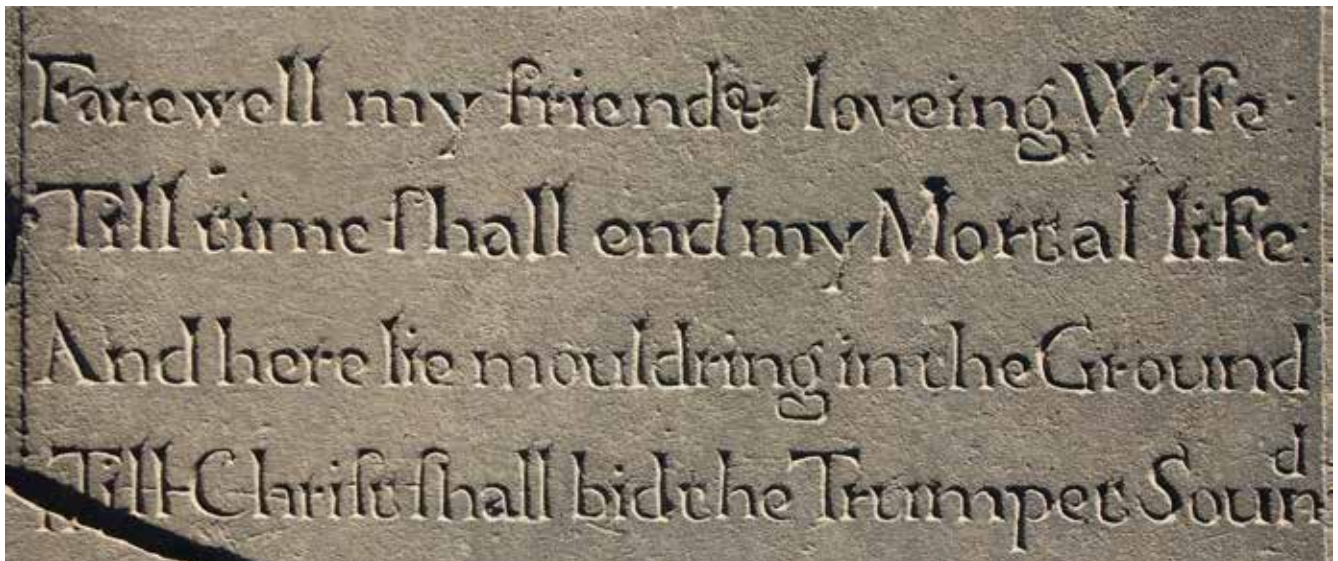 Farewell my friend & loveing Wife:
Till time ſhall end my Mortal life:
And here lie mouldring in the Ground
Till Chriſt ſhall bid the Trumpet Sound